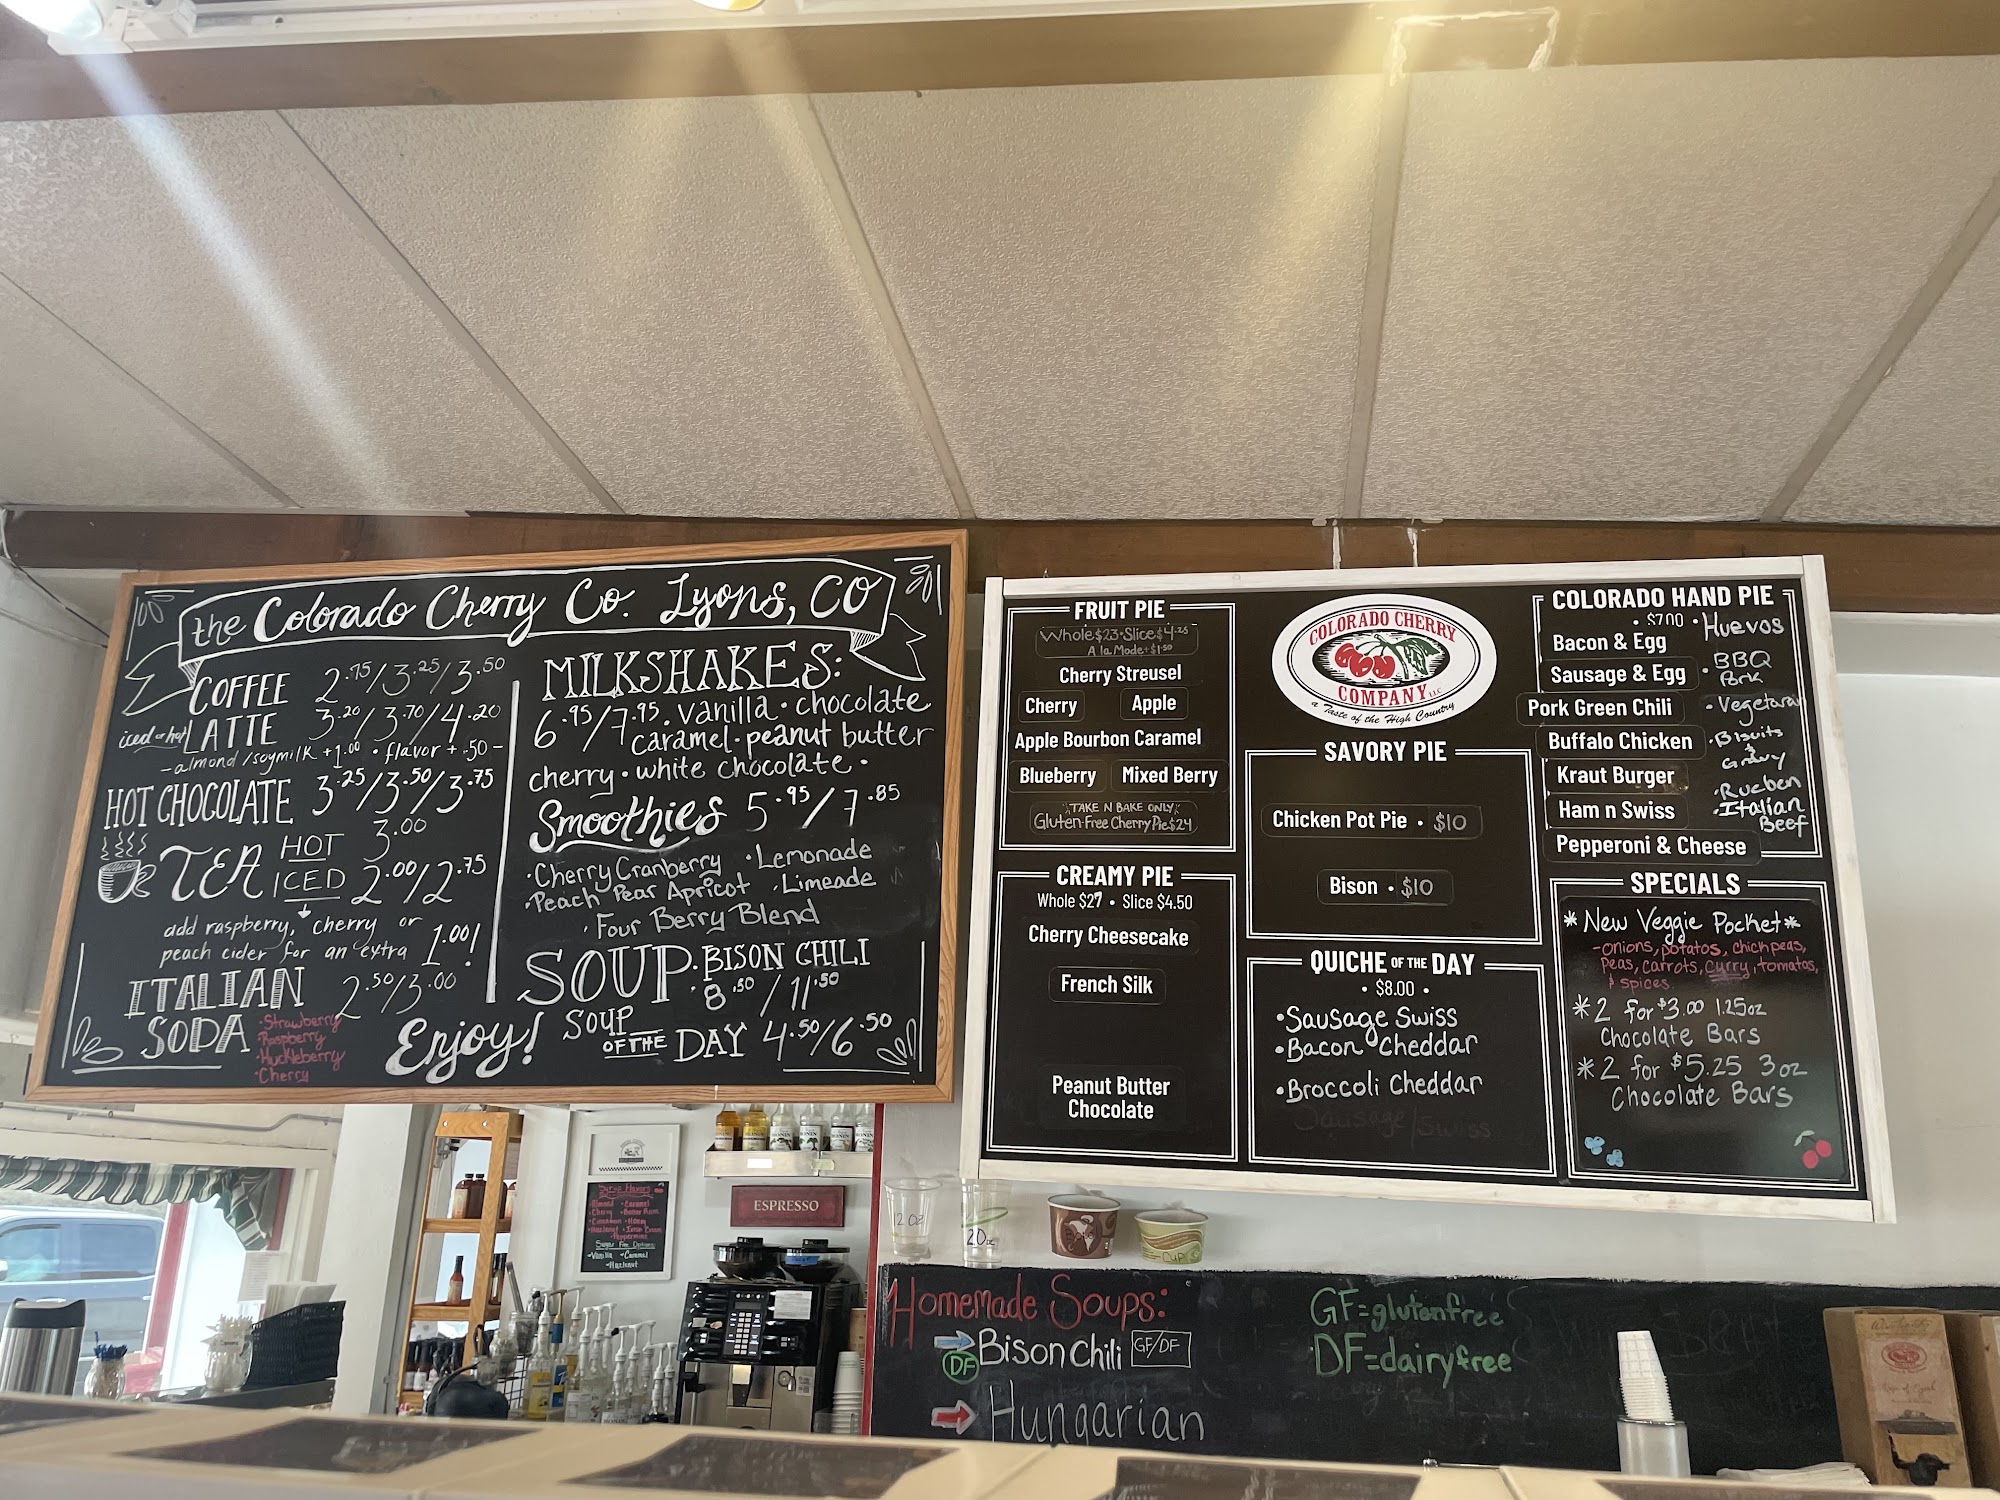 the Colorado Cherry Co. Lyons, CO
COFFEE 2.75/3.25/3.50
iced or hot LATTE 3.20/3.70/4.20
- almond/soymilk +1.00 • flavor +.50 -
HOT CHOCOLATE 3.25/3.50/3.75
TEA HOT 3.00
ICED 2.00/2.75
add raspberry, cherry or
peach cider for an extra 1.00!
ITALIAN SODA 2.50/3.00
• Strawberry
• Raspberry
• Huckleberry
• Cherry
Enjoy!
MILKSHAKES:
6.95/7.95 • vanilla • chocolate
caramel • peanut butter
cherry • white chocolate •
Smoothies 5.95/7.85
• Cherry Cranberry • Lemonade
• Peach Pear Apricot • Limeade
• Four Berry Blend
SOUP: BISON CHILI
8.50/11.50
SOUP OF THE DAY 4.50/6.50
FRUIT PIE
Whole $23 • Slice $4.25
A la Mode + $1.50
Cherry Streusel
Cherry
Apple
Apple Bourbon Caramel
Blueberry
Mixed Berry
TAKE N BAKE ONLY:
Gluten-Free Cherry Pie $24
CREAMY PIE
Whole $27 • Slice $4.50
Cherry Cheesecake
French Silk
Peanut Butter
Chocolate
COLORADO CHERRY
COMPANY LLC
a Taste of the High Country
SAVORY PIE
Chicken Pot Pie • $10
Bison • $10
QUICHE OF THE DAY
• $8.00 •
• Sausage Swiss
• Bacon Cheddar
• Broccoli Cheddar
Sausage/Swiss
COLORADO HAND PIE
• $7.00 •
Bacon & Egg
Sausage & Egg
Pork Green Chili
Buffalo Chicken
Kraut Burger
Ham n Swiss
Pepperoni & Cheese
• Huevos
• BBQ
Pork
• Vegetarian
• Biscuits
&
Gravy
• Rueben
• Italian
Beef
SPECIALS
* New Veggie Pocket *
- onions, potatos, chickpeas,
Peas, carrots, curry, tomatos,
& spices.
* 2 for $3.00 1.25oz
Chocolate Bars
* 2 for $5.25 3oz
Chocolate Bars
Syrup Flavors
ESPRESSO
12 oz
20oz
Bowl
Cup
Homemade Soups:
DF Bison Chili GF/DF
Hungarian
GF=glutenfree
DF=dairyfree